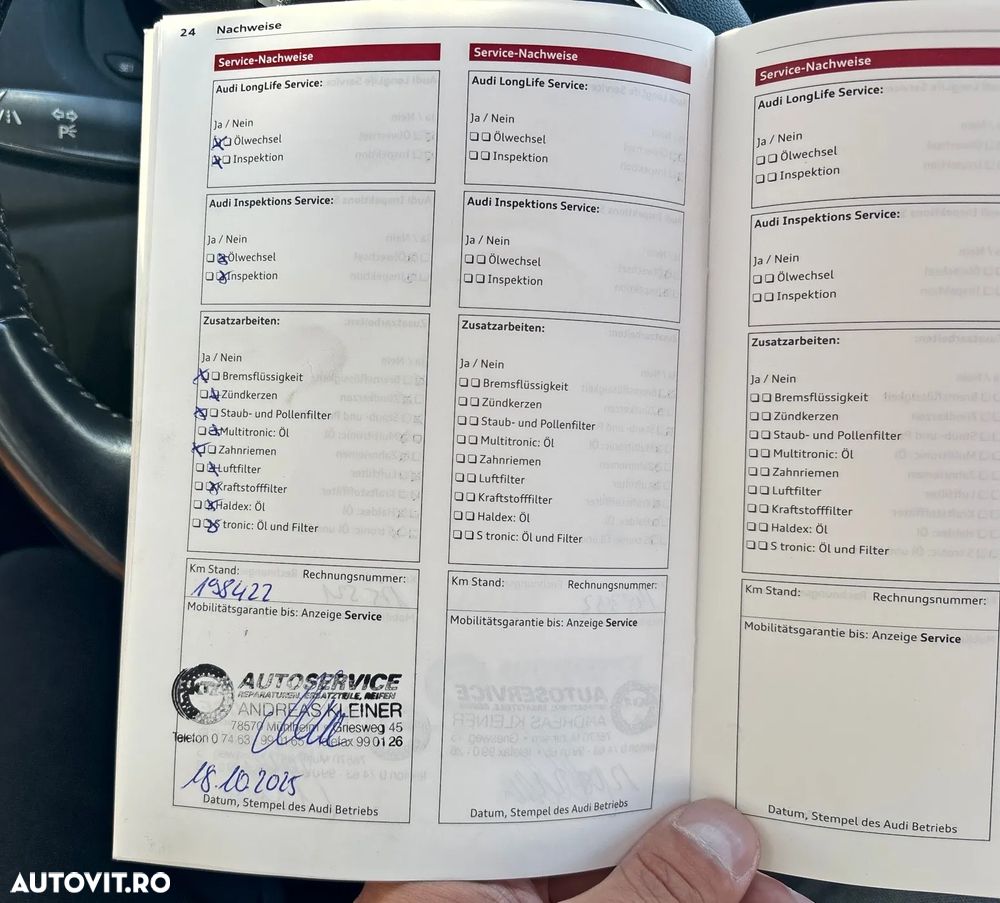 24 Nachweise
Service-Nachweise
Audi LongLife Service:
Ja / Nein
Ölwechsel
Inspektion
Audi Inspektions Service:
Ja / Nein
Ölwechsel
Inspektion
Zusatzarbeiten:
Ja / Nein
Bremsflüssigkeit
Zündkerzen
Staub- und Pollenfilter
Multitronic: Öl
Zahnriemen
Luftfilter
Kraftstofffilter
Haldex: Öl
S tronic: Öl und Filter
Km Stand: Rechnungsnummer:
198422
Mobilitätsgarantie bis: Anzeige Service
AUTOSERVICE
REPARATUREN, ERSATZTEILE, REIFEN
ANDREAS KLEINER
78570 Mühlheim Griesweg 45
Telefon 0 74 63 Telefax 99 01 26
18.10.2025
Datum, Stempel des Audi Betriebs
Service-Nachweise
Audi LongLife Service:
Ja / Nein
Ölwechsel
Inspektion
Audi Inspektions Service:
Ja / Nein
Ölwechsel
Inspektion
Zusatzarbeiten:
Ja / Nein
Bremsflüssigkeit
Zündkerzen
Staub- und Pollenfilter
Multitronic: Öl
Zahnriemen
Luftfilter
Kraftstofffilter
Haldex: Öl
S tronic: Öl und Filter
Km Stand: Rechnungsnummer:
Mobilitätsgarantie bis: Anzeige Service
Datum, Stempel des Audi Betriebs
Service-Nachweise
Audi LongLife Service:
Ja / Nein
Ölwechsel
Inspektion
Audi Inspektions Service:
Ja / Nein
Ölwechsel
Inspektion
Zusatzarbeiten:
Ja / Nein
Bremsflüssigkeit
Zündkerzen
Staub- und Pollenfilter
Multitronic: Öl
Zahnriemen
Luftfilter
Kraftstofffilter
Haldex: Öl
S tronic: Öl und Filter
Km Stand: Rechnungsnummer:
Mobilitätsgarantie bis: Anzeige Service
Datum, Stempel des Audi Betriebs
AUTOVIT.RO